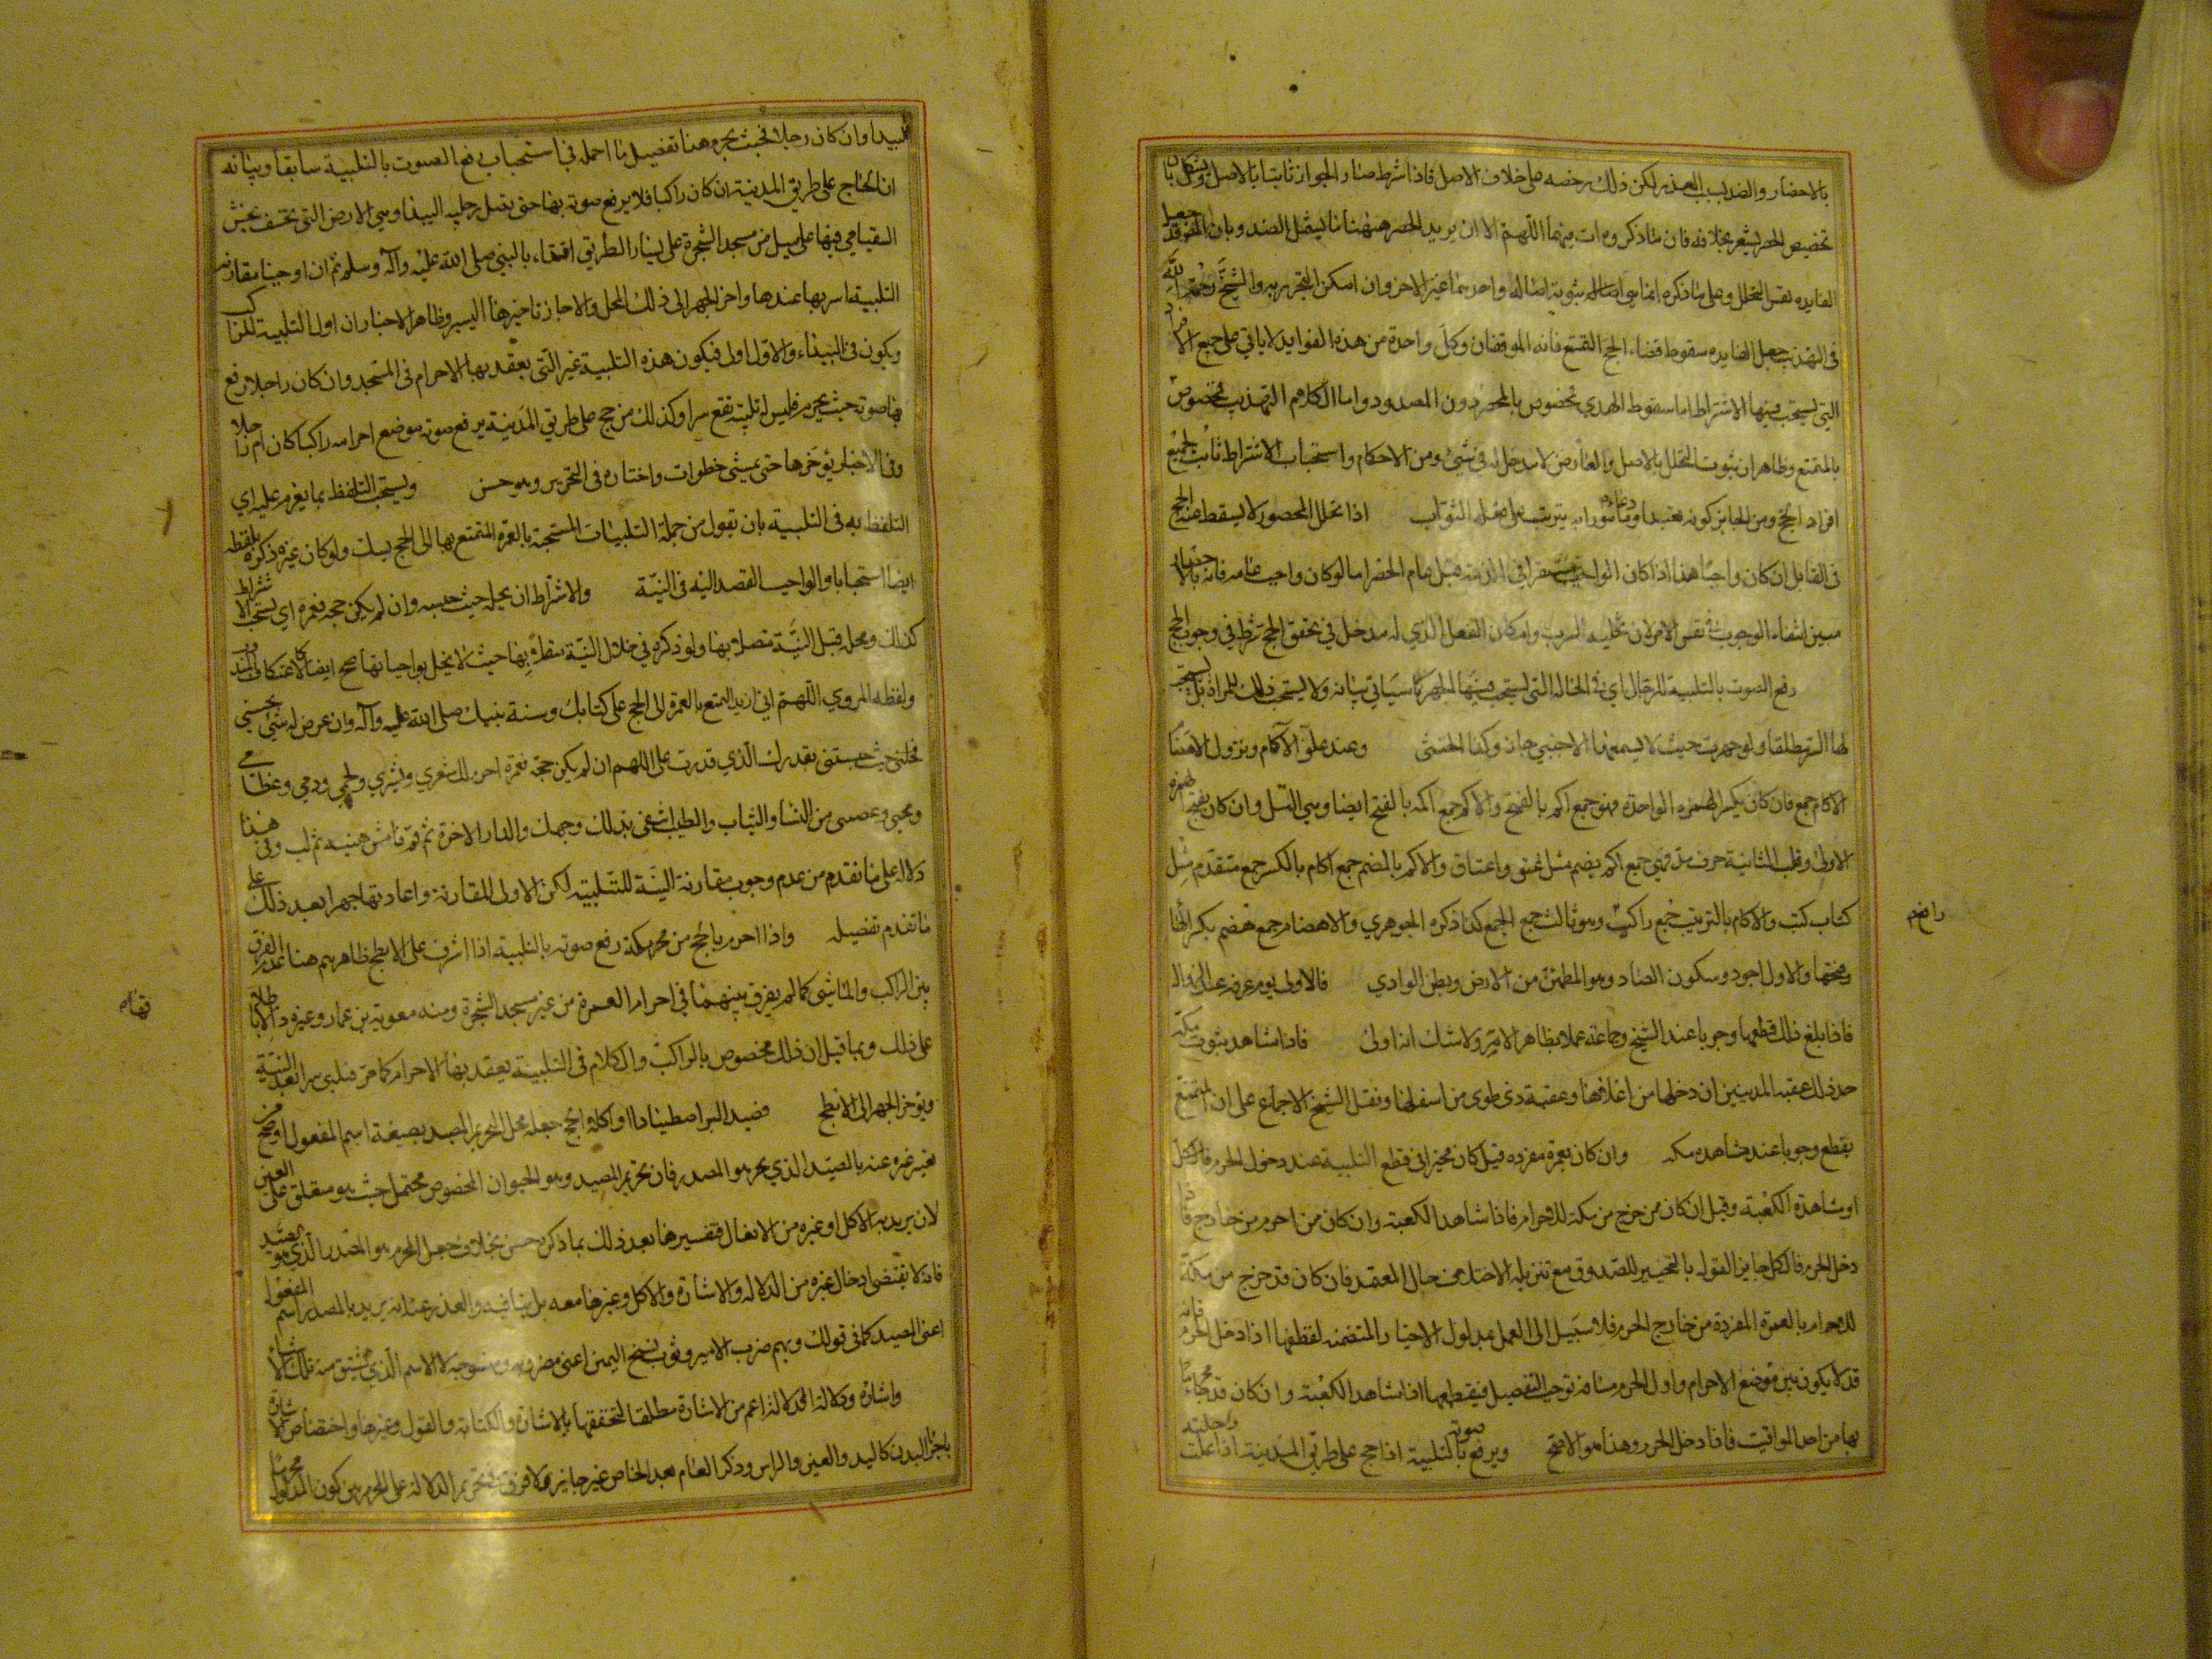 بالاحصار والصد بسبب العذر لكن ذلك رخصه على خلاف الاصل فاذا شرط صار الجواز ثابتا بالاصل ويشكل بان
تخصيص الحصر يشعر بخلافه فان ما ذكروه ات فيهما اللهم الا ان يريد بالحصر ههنا ما يشمل الصد وبان المفروض جعل
الفايده نفس التحلل وعلى ما ذكره انما هى اصاله ثبوته واحدهما غير الاخر وان امكن التحرير به والشيخ رحمه الله
فى التهذيب جعل الفايده سقوط قضاء الحج المتمتع فانه الموقضان وكل واحدة من هذه الفوايد لا ياتي على جميع الافراد
التي يستحب فيها الاشتراط اما سقوط الهدي فمخصوص بالمحصر دون المصدود واما كلام التهذيب فمخصوص
بالمتمتع وظاهر ان ثبوت التحلل بالاصل والعارض لا مدخل له في شيء من الاحكام واستحباب الاشتراط ثابت لجميع
افراد الحج ومن الجايز كونه تعبدا ودعاء مامورا به يترتب على فعله الثواب اذا تحلل المحصور لا يسقط عنه الحج
فى القابل ان كان واجبا هذا اذا كان الواجب مستقرا في الذمة قبل عام الحصر اما لو كان واجب عامه فانه بالاحصار
مبين انتفاء الوجوب فى نفس الامر لان تخليه السرب وامكان الفعل الذي له مدخل في تحقق الحج شرط في وجوب الحج
رفع الصوت بالتلبية للرجال اي في الحاله التي يستحب فيها الجهر كما سياتي بيانه ولا يستحب ذلك للمراة بل يستحب
لها السر مطلقا ولو جهرت حيث لا يسمعها الاجنبي جاز وكذا الخنثى وعند علو الآكام ونزول الاهضام
الاكام جمع فان كان بكسر الهمزه الواحدة فهو جمع اكم بالفتح والاكم جمع اكمه بالفتح ايضا وهي التل وان كان بفتح الهمزه
الاولى وقلب الثانية حرف مد فهي جمع اكم بضم مثل عنق واعناق والاكم بالضم جمع اكام بالكسر جمع متقدم مثل
كتاب كتب والاكام بالترتيب جمع راكب وهو ثالث جمع الجمع كذا ذكره الجوهري والاهضام جمع هضم بكسر الها
وفتحها والاول اجود وسكون الضاد وهو المطمئن من الارض وبطن الوادي فالاولى يوم عرفه عند الزوال
فاذا بلغ ذلك قطعها وجوبا عند الشيخ وجماعة عملا بظاهر الامر ولا شك انه اولى فاذا شاهد بيوت مكة
حد ذلك عقبه المدنيين ان دخلها من اعلاها وعقبة ذي طوى من اسفلها ونقل الشيخ الاجماع على ان المتمتع
يقطع وجوبا عند مشاهده مكه وان كان بعمرة مفرده قيل كان مخيرا في قطع التلبية عند دخول الحرم
او مشاهدة الكعبة وقيل ان كان ممن خرج من مكة للاحرام فاذا شاهد الكعبة وان كان ممن احرم من خارج فاذا
دخل الحرم فالكل جايز القول بالتخيير للصدوق مع تنزيله الاختلاف على حال المعتمر فان كان قد خرج من مكة
للاحرام بالعمرة المفردة من خارج الحرم فلا سبيل الى العمل بمدلول الاخبار المتضمنه لقطعها اذا دخل الحرم فانه
قد لا يكون بين موضع الاحرام واول الحرم مسافة توجب التفصيل فيقطعها اذا شاهد الكعبة وان كان قد جاء محرما
بها من احد المواقيت فاذا دخل الحرم وهذا هو الاصح ويرفع صوته بالتلبية اذا حج على طريق المدينة اذا علت راحلته
راضم
البيدا وان كان راجلا فحيث يحرم هنا تفصيل ما اجمله في استحباب رفع الصوت بالتلبية سابقا وبيانه
ان الحاج على طريق المدينة ان كان راكبا فلا يرفع صوته بها حتى يصل رحله البيدا وهي الارض التي يخسف بجيش
السفياني فيها على ميل من مسجد الشجرة على يسار الطريق اقتداء بالنبي صلى الله عليه وآله وسلم ثم ان اوجبنا مقارنة
التلبية اسر بها عندها واخر الجهر الى ذلك المحل والا جاز تاخيرها اليه وظاهر الاخبار ان اول التلبية للراكب
ويكون فى البيداء والاول اولى فيكون هذه التلبية غير التي يعقد بها الاحرام فى المسجد وان كان راجلا رفع
بها صوته حيث يحرم فليس له تلبية تقع سرا وكذلك من حج على طريق المدينة يرفع صوته موضع احرامه راكبا كان ام راجلا
وفى الاخبار يؤخرها حتى يمشي خطوات واختاره فى التحرير وهو حسن ويستحب التلفظ بما يعزم عليه اي
التلفظ به فى التلبية بان تقول من جملة التلبيات المستحبة بالعمرة المتمتع بها الى الحج لبيك ولو كان غيره ذكره بلفظه
ايضا استحبابا والواجب القصد اليه فى النية والاشتراط ان يحله حيث حبسه وان لم يكن حجه فعمره اي يستحب الاشتراط
كذلك ومحله قبل النية متصلا بها ولو ذكره في خلال النية حيث لا يخل بواجباتها صح ايضا كالاعتكاف
ولفظه المروي اللهم اني اريد التمتع بالعمرة الى الحج على كتابك وسنة نبيك صلى الله عليه وآله وان عرض لى شيء يحبسني
فحلني حيث حبستني بقدرك الذي قدرت على اللهم ان لم يكن حجة فعمرة احرم لك شعري وبشري ولحمي ودمي وعظامي
ومخي وعصبي من النسا والثياب والطيب ابتغي بذلك وجهك والدار الاخرة ثم قم فامش هنيئه ثم لب وفي هذا
دلاله على ما تقدم من عدم وجوب مقارنة النية للتلبية لكن الاولى المقارنة واعادتها جهرا بعد ذلك على
ما تقدم تفصيله واذا احرم بالحج من مكة رفع صوته بالتلبية اذا اشرف على الابطح ظاهرهم هنا عدم الفرق
بين الراكب والماشي كما لم يفرق بينهما في احرام العمرة من غير مسجد الشجرة ومنه معوية بن عمار وغيره
على ذلك وبما قيل ان ذلك مخصوص بالراكب والكلام فى التلبية يعقد بها الاحرام كما مر فيلبي سرا بعد النية
ويؤخر الجهر الى الابطح فصيد البر اصطيادا او اكلا والحج جعله محل التحريم المصيد بصيغة اسم المفعول اوضح من
تعبير غيره عنه بالصيد الذي يحرم هو المصدر فان تحريم المصيد وهو الحيوان المخصوص محتمل حيث هو متعلق على العين
لان يريد به الاكل او غيره من الافعال فتفسيرها بعد ذلك بما ذكر حسن بخلاف جعل المحرم هو المصدر الذي هو الصيد
فانه لا يقتضي ادخال غيره من الدلاله والاشارة والاكل وغيرها معه بل ينافيه والعذر عنه انه يريد بالمصدر اسم المفعول
اعنى المصيد كما فى قولك درهم ضرب الامير وثوب نسخ اليمن اعني مضروبه ومنسوجه لا الاسم الذي يشتق منه
واشارة ودلالة الدلالة اعم من الاشارة مطلقا لتحققها بالاشارة والكتابة والقول وغيرها واختصاص الاشارة
باجزا البدن كاليد والعين والراس وذكر العام بعد الخاص غير جايز ولا فرق فى تحريم الدلالة على المحرم بين كون المدلول محرما